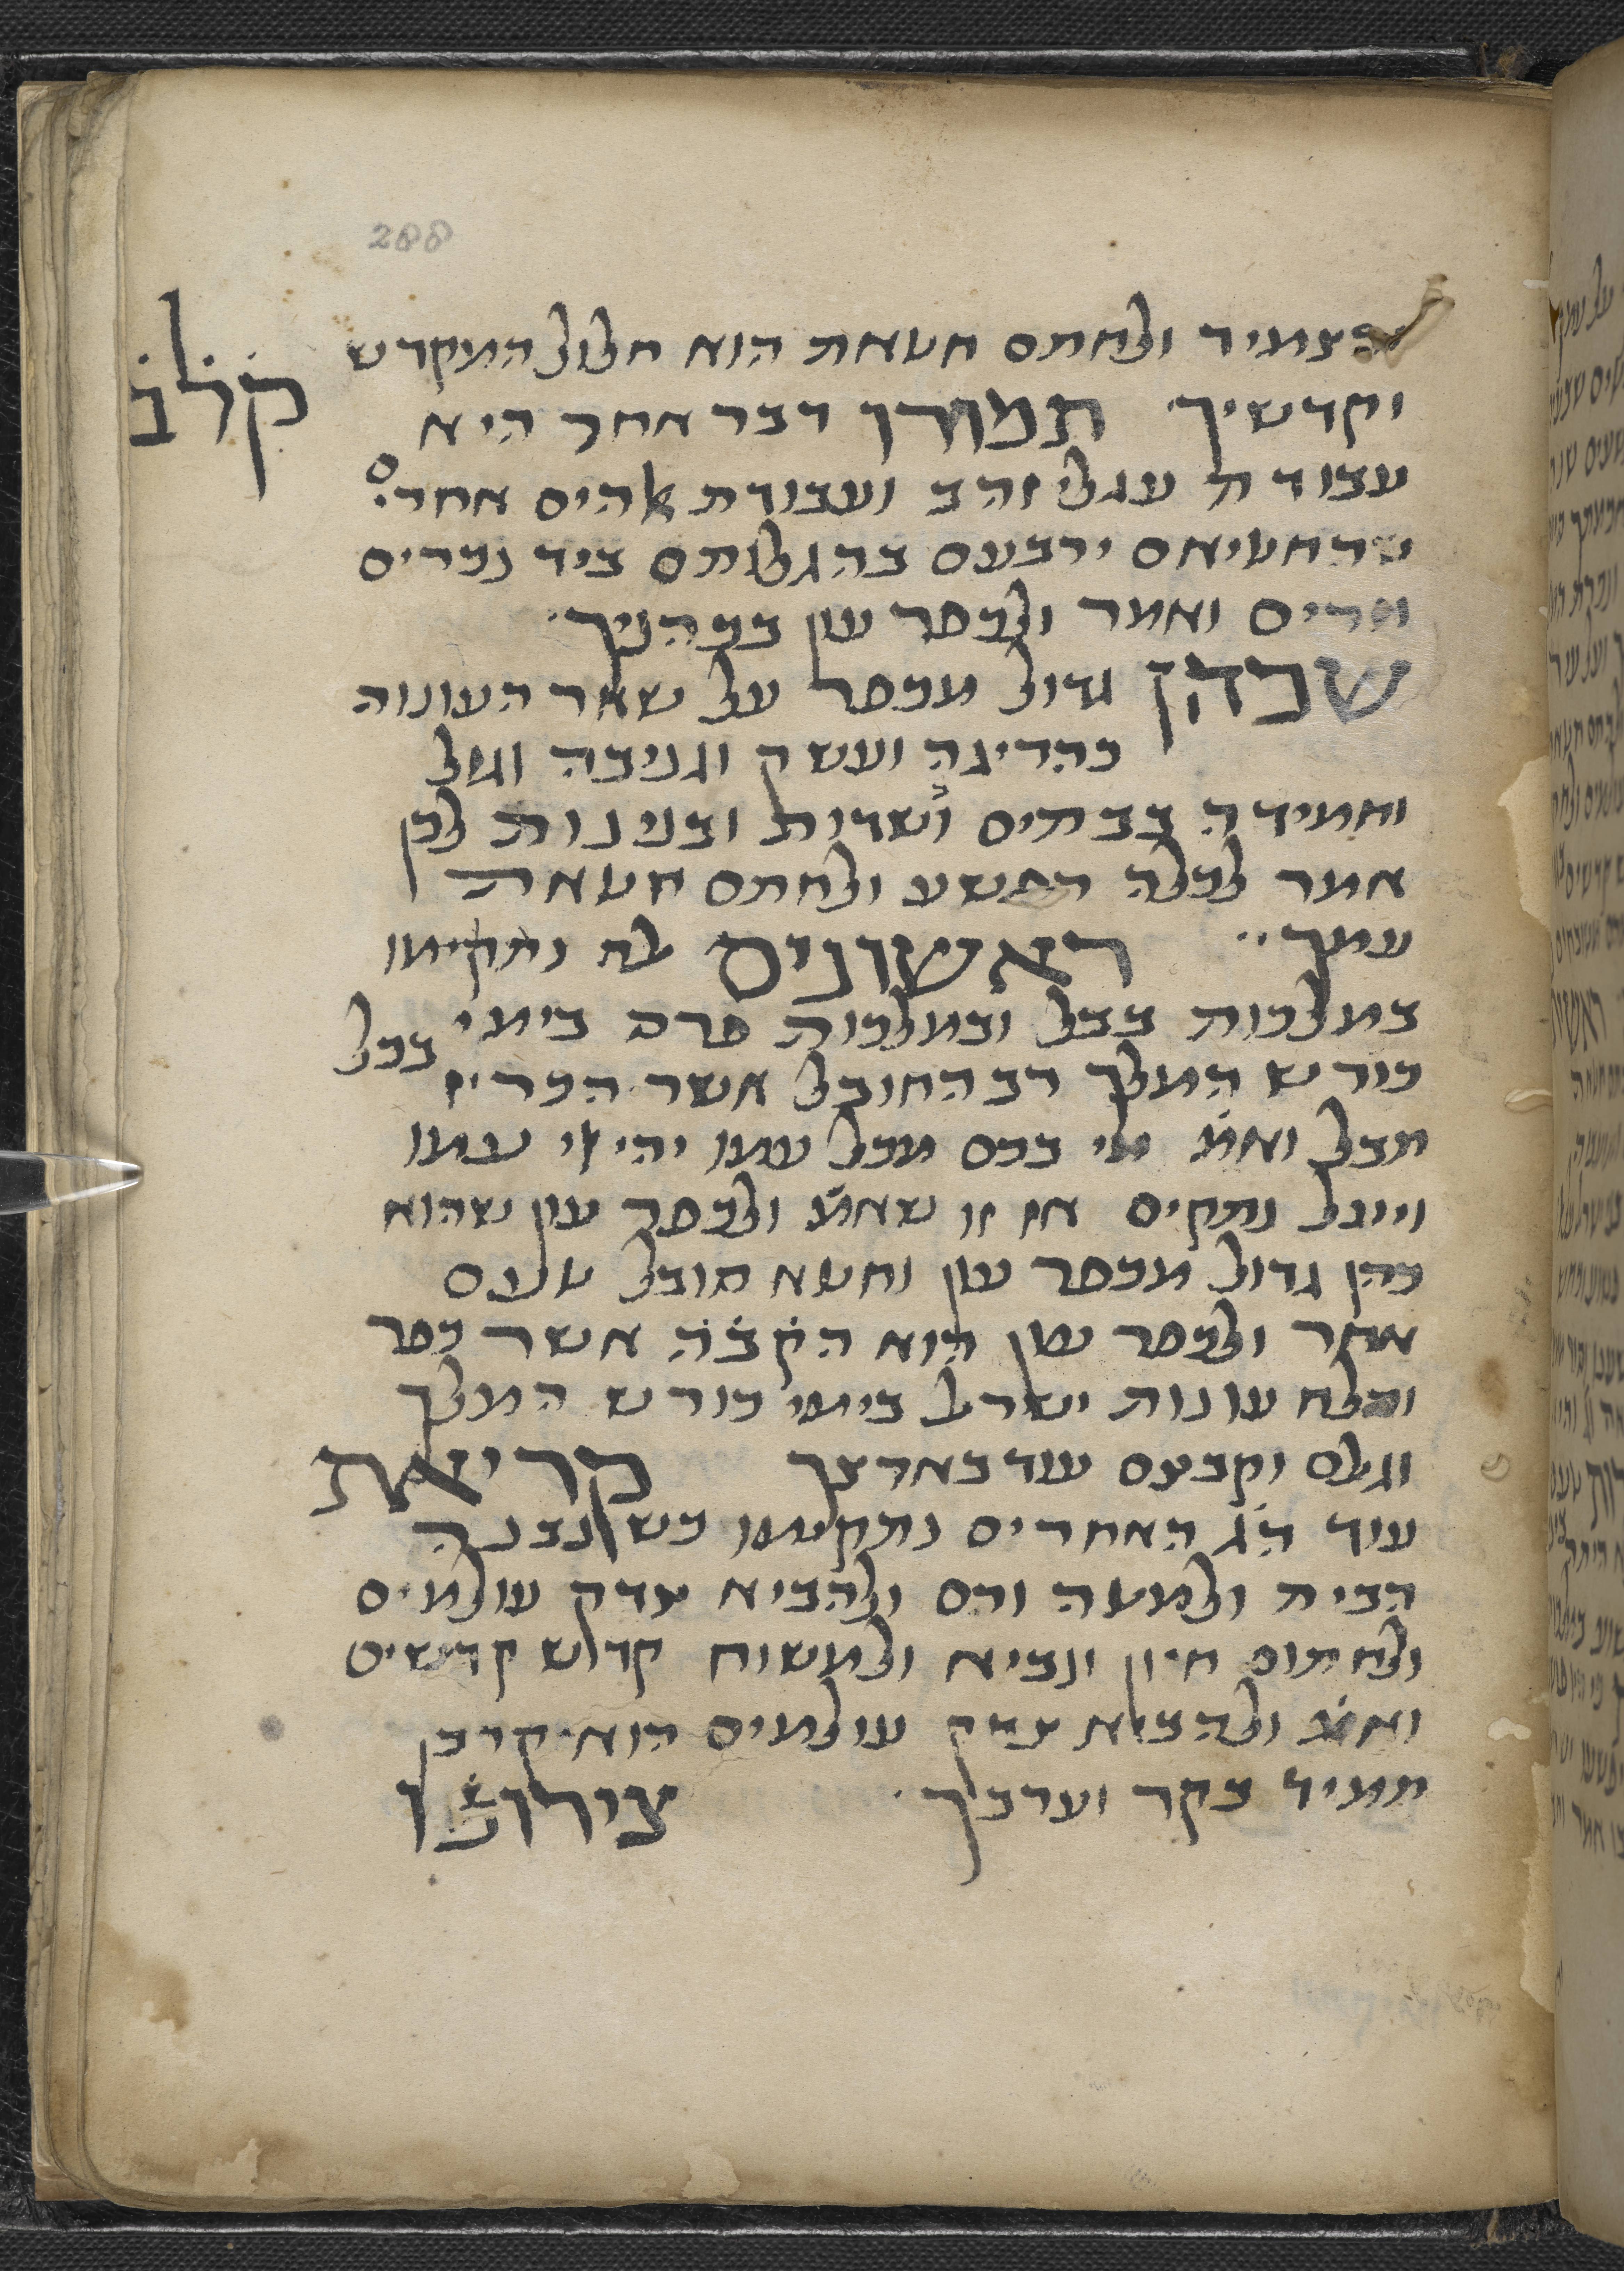 288
קׄלׄבׄ
הצמיד ולחתם חטאת הוא חלול המקדש
וקדשיך תמורך דבר אחר היא
עבודת עגל זהב ועבודת אהים אחרי׳
שהחטיאם ירבעם בהגלותם ביד נכרים
וזרים ואמר ולכפר עון בכהניך
שכהן גדול מכפר על שאר העונות
כהריגה ועשק וגניבה וגזל
וחמידה בבתים ושדות ובנינות לכן
אמר לכלה הפשע ולחתם חטאת
עמך ראשונים לא נתקיימו
במלכות בבל ובמלכות פרס בימי
כורש המלך רב החובל אשר הכריז בכל
תבל ואמ׳ מי בכם מכל עמו יהי ייי עמו
וייגל נתקים אז זו שאמ׳ ולכפר עון שהוא
כהן גדול מכפר עון וחטא חובל טעם
אחר ולכפר עון הוא הקׄבׄהׄ אשר כפר
וסלח עונות ישראל בימי כורש המלך
וגאלם וקבעם עוד בארצך קריאת
עוד הג׳ האחרים נתקיימו כשנבנה
הבית ולמעה והם ולהביא צדק עולמים
ולחתום חיון ונביא ולמשוח קדוש קדשים
ואמ׳ ולהביא צדק עולמים הוא קרבן
תמיד בקר וערבך